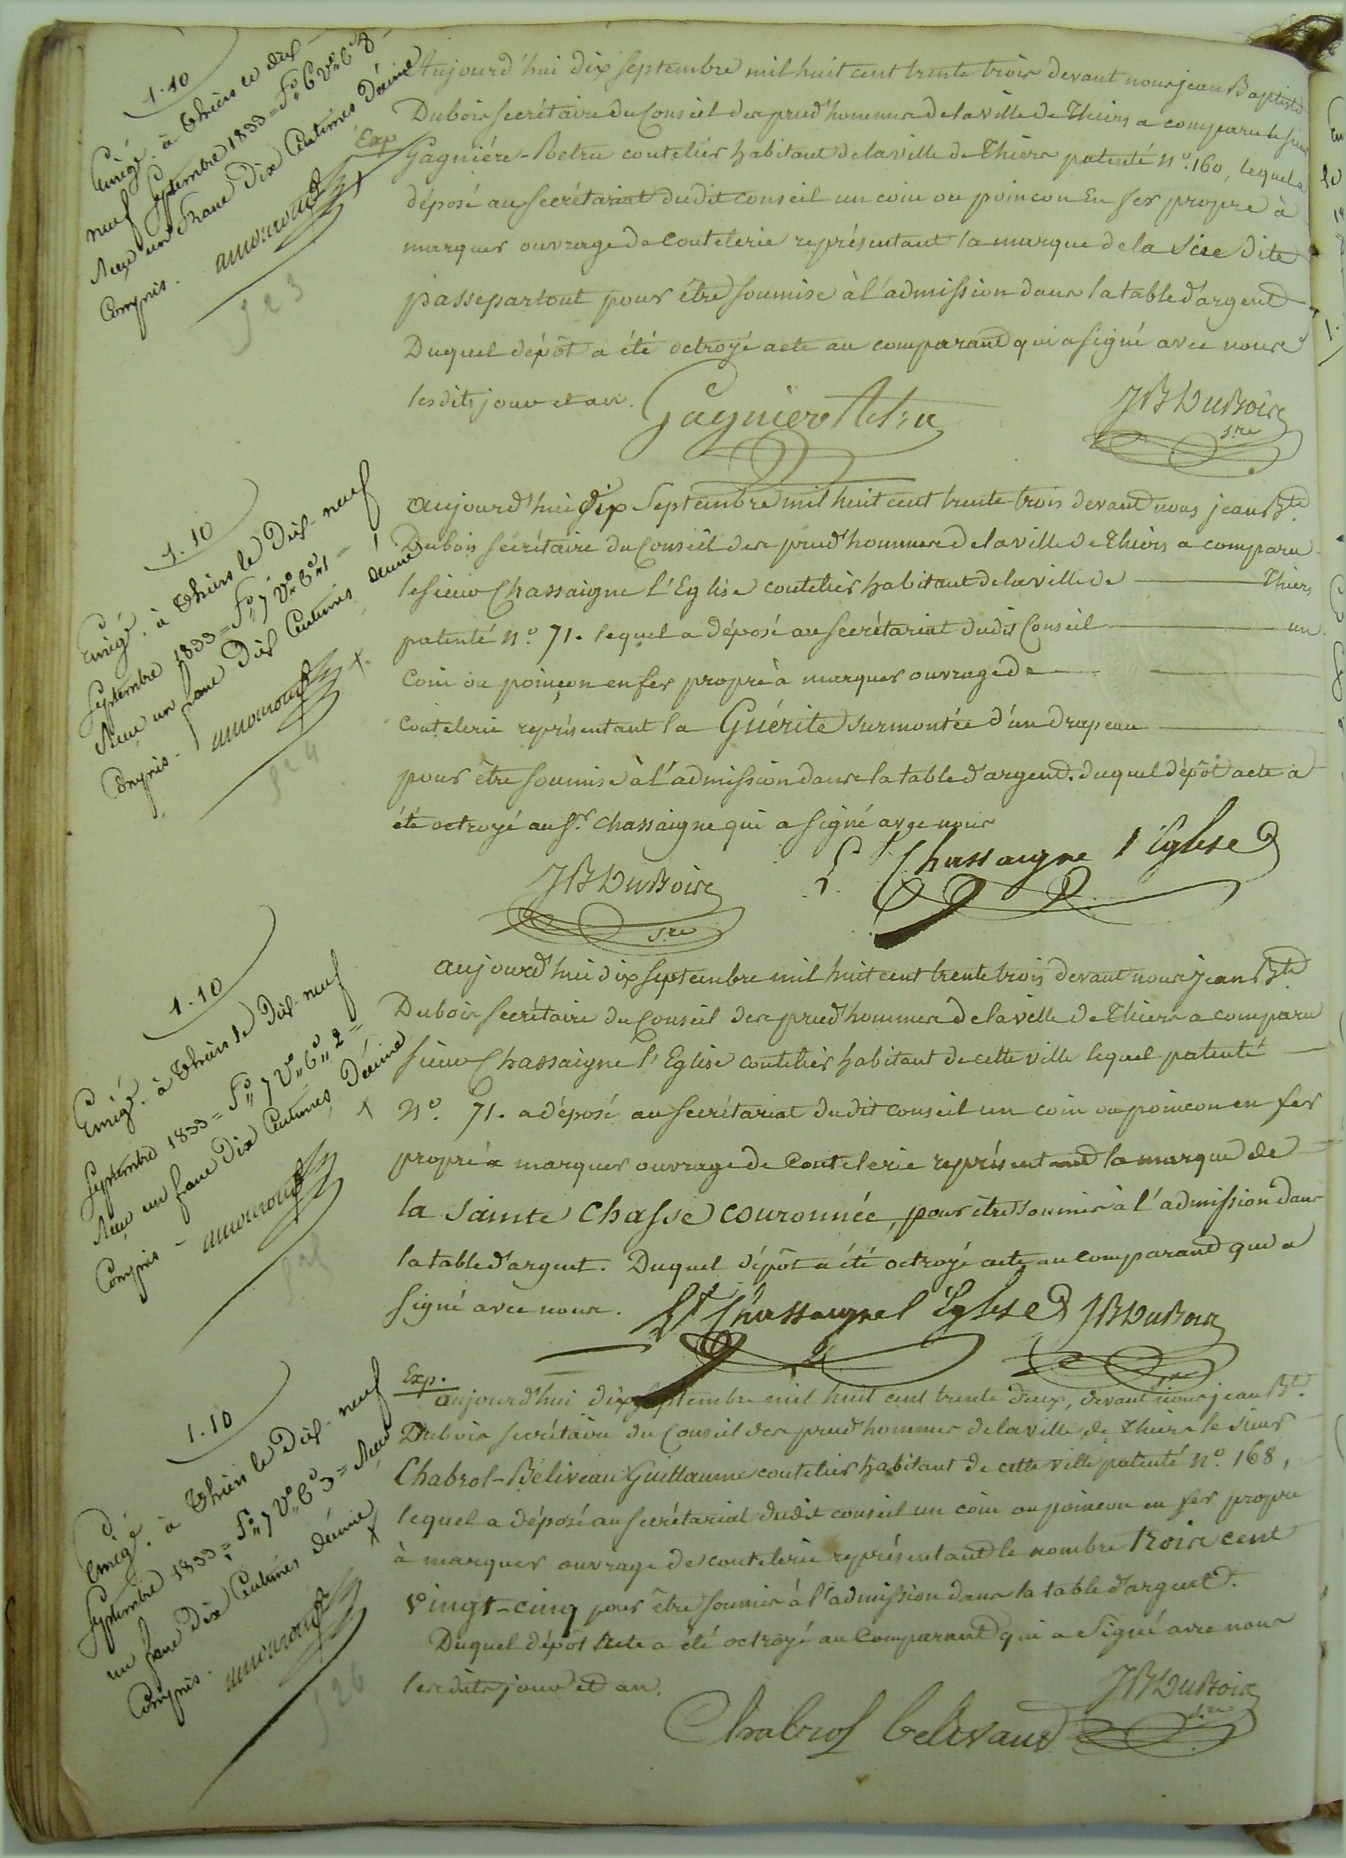 1.10
Enrégé. à Thiers le dix-
neuf Septembre 1833 = F° 6 V° C° 8 -
Reçu un Franc Dix Centimes Décime
Compris.
523
Exp
Aujourd'hui dix septembre mil huit cent trente trois devant nous jean Baptiste
Dubois Secrétaire du Conseil des prud'hommes de la ville de Thiers a comparu le sieur
Gagnière-Retru coutelier habitant de la ville de Thiers patenté N°. 160, lequel a
déposé au secrétariat dudit conseil un coin ou poincon En fer propre à
marquer ouvrage de Coutelerie représentant la marque de la Scie dite
passepartout pour être soumise à l'admission dans la table d'argent
Duquel dépôt a été octroyé acte au comparant qui a signé avec nous
lesdits jour et an.
Gagnière Retru
JB DuBois
s.re
1.10
Enrégé. à Thiers le Dix-neuf
Septembre 1833 = F° 7 V° C° 1 =
Reçu un franc Dix Centimes, décime
Compris -
524
aujourd'hui Dix Septembre mil huit cent trente trois devant nous jean Bte
Dubois Sécrétaire du Conseil des prud'hommes de la ville de Thiers a comparu
le sieur Chassaigne l'Eglise coutelier habitant de la ville de Thiers
patenté N° 71. lequel a déposé au Secrétariat dudit Conseil un
Coin ou poinçon en fer propre à marquer ouvrage de
Coutelerie représentant la Guérite surmontée d'un drapeau
pour être soumise à l'admission dans la table d'argent. duquel dépôt acte a
été octroyé au Sr. Chassaigne qui a signé avec nous
JB DuBois
s.re
Chassaigne l'Eglise
1.10
Enrégé. à Thiers le Dix-neuf
Septembre 1833 = F° 7 V° C° 2 =
Reçu un franc Dix Centimes, Décime
Compris -
525
aujourd'hui dix septembre mil huit cent trente trois devant nous jean Bte
Dubois Secrétaire du Conseil des prud'hommes de la ville de Thiers a comparu
sieur Chassaigne l'Eglise coutelier habitant de cette ville lequel patenté
N°. 71. a déposé au secrétariat dudit conseil un coin ou poincon en fer
propre a marquer ouvrage de Coutelerie représentant la marque de
la Sainte Chasse couronnée, pour être soumis à l'admission dans
la table d'argent. Duquel dépôt a été octroyé acte au comparant qui a
signé avec nous.
Chassaigne l'Eglise
JB DuBois
1.10
Enrégé. à Thiers le Dix-neuf
Septembre 1833 = F° 7 V° C° 3 = Reçu
un franc Dix Centimes décime
Compris.
526
Exp.
aujourd'hui dix septembre mil huit cent trente deux, devant nous jean Bte
Dubois secrétaire du Conseil des prud'hommes de la ville de Thiers le sieur
Chabrol-Béliveau Guillaume coutelier habitant de cette ville patenté N°. 168,
lequel a déposé au secrétariat dudit conseil un coin ou poincon en fer propre
à marquer ouvrage de coutelerie représentant le nombre trois cent
vingt-cinq pour être soumis à l'admission dans la table d'argent.
Duquel dépôt Acte a été octroyé au Comparant qui a Signé avec nous
lesdits jour et an.
Chabrol belivaud
JB DuBois
s.re